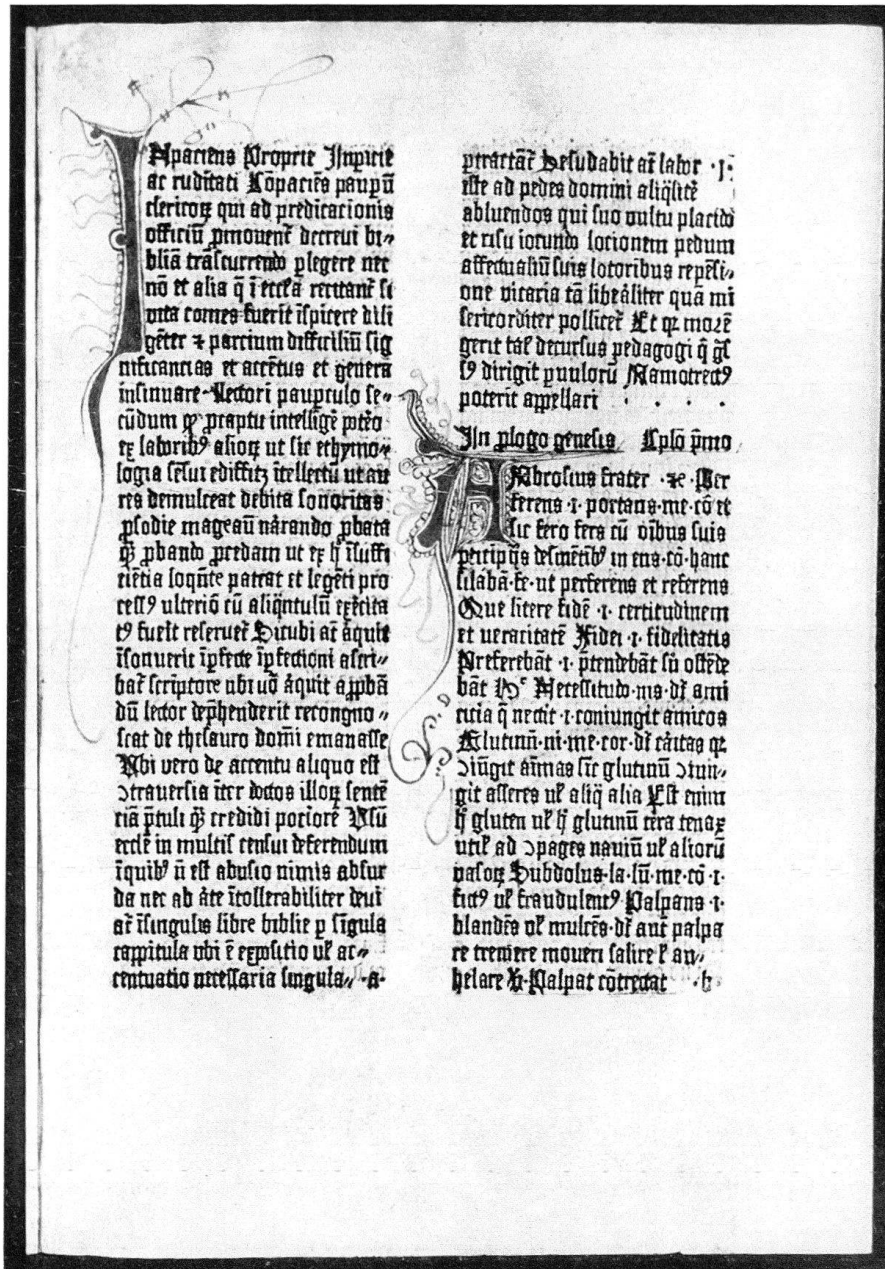 INpaciens Proprie Jnpericie
ac ruditati Cōpaciēs paupū
clericoꝝ qui ad predicacionis
officiū ꝓmouent̄ decreui bi〃
bliā trāscurrendo ꝑlegere nec
nō et alia q̄ ī eccl̄ia recitant̄ si
vita comes fuerit īspicere dili
gēter ⁊ parcium difficiliū sig
nificancias et accētus et genera
insinuare Lectori paupculo se〃
cūdum qꝫ ꝑcaptu intelligē potēo
ex laboribꝰ alioꝝ ut sic ethymo〃
logia sēsui edificꝫ ītellectū ut au
res demulceat debita sonoritas
ꝓsodie mageāū nārando ꝓbata
qꝫ ꝓbando ꝓredam ut ex h̄ īsuffi
ciētia loqn̄te pateat et legēti pro
cessꝰ ulterio᷑ cū aliq̄ntulū exēcita
tꝰ fuerit reseruet̄ Sicubi at̄ āquit
īsonuerit īꝑfecte īꝑfectioni ascri〃
bat̄ scriptore ubi uō āquit aꝓbā
dū lector dep̄henderit recongno〃
scat de thesauro dom̄i emanasse
Vbi vero de accentu aliquo est
ↄtrauersia īter doctos illoꝝ sentē
ciā p̄tuli qꝫ credidi pociorē Vsū
eccl̄ie in multis censui deferendum
īquibꝰ n̄ est abusio nimis absur
da nec ab āte ītollerabiliter deui
at̄ īsingulis libre biblie ꝑ sīgula
cappitula vbi ē expositio uł ac〃
centuatio necessaria singula〃 ·a·
ꝑtractat̄ Desudabit at̄ labor ·J·
iste ad pedes domini aliq̄litē
abluendos qui suo vultu placido
et risu iocundo locionem pedum
affectualiū suis lotoribus repēsi〃
one vicaria tā liberāliter quā mi
sericorditer pollicet̄ Et qꝫ morē
gerit tal̄ decursus pedagogi q̄ gꝭ
sꝰ dirigit ꝑuulorū Mamotrectꝰ
poterit appellari · · · ·
Jn ꝓlogo genesis Cplō p̄mo
AMbrosius frater ·⁊c· Per
ferens ·i· portans·me·cō et
sic fero fers cū oībus suis
ꝑticip̄ijs desinētibꝰ in ens·cō·hanc
silabā·fe·ut perferens et referens
Que litere fidē ·i· certitudinem
et ueracitatē Fidei ·i· fidelitatis
Preferebāt ·i· p̄tendebāt sū ostēde
bāt Hᶜ Necessitudo·nis·dr̄ ami
cicia q̄ nectit ·i·coniungit amicos
Glutinū·ni·me·cor·dr̄ cāitas qꝫ
ↄiūgit aīmas sic̄ glutinū ↄiun〃
git asseres uł aliq̄ alia Est enim
h̄ gluten uł h̄ glutinū tēra tenax
utił ad ↄpages nauiū uł aliorū
uasoꝝ Subdolus·la·lū·me·cō·i·
fictꝰ uł fraudulentꝰ Palpans·i·
blandēs uł mulcēs·dr̄ aut̄ palpa
re tremere moueri salire ł an〃
helare Palpat cōtrectat ·b·